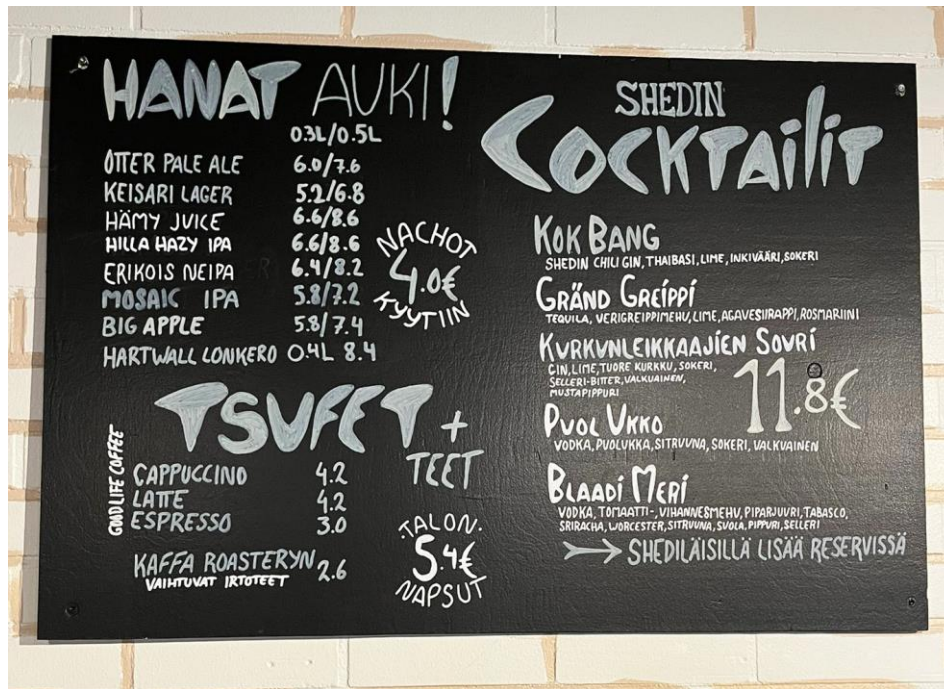 HANAT AUKI!
0.3L/0.5L
OTTER PALE ALE 6.0/7.6
KEISARI LAGER 5.2/6.8
HÄMY JUICE 6.6/8.6
HILLA HAZY IPA 6.6/8.6
ERIKOIS NEIPA 6.4/8.2
MOSAIC IPA 5.8/7.2
BIG APPLE 5.8/7.4
HARTWALL LONKERO 0.4L 8.4
NACHOT
4.0€
KYYTIIN
TSUFET +
TEET
GOOD LIFE COFFEE
CAPPUCCINO 4.2
LATTE 4.2
ESPRESSO 3.0
KAFFA ROASTERYN 2.6
VAIHTUVAT IRTOTEET
TALON
5.4€
NAPSUT
SHEDIN
COCKTAILIT
KOK BANG
SHEDIN CHILI GIN, THAIBASI, LIME, INKIVÄÄRI, SOKERI
GRÄND GREIPPI
TEQUILA, VERIGREIPPIMEHU, LIME, AGAVESIIRAPPI, ROSMARIINI
KURKUNLEIKKAAJIEN SOURI
GIN, LIME, TUORE KURKKU, SOKERI,
SELLERI-BITTER, VALKUAINEN,
MUSTAPIPPURI
11.8€
PUOL UKKO
VODKA, PUOLUKKA, SITRUUNA, SOKERI, VALKUAINEN
BLAADI MERI
VODKA, TOMAATTI-, VIHANNESMEHU, PIPARJUURI, TABASCO,
SRIRACHA, WORCESTER, SITRUUNA, SUOLA, PIPPURI, SELLERI
→ SHEDILÄISILLÄ LISÄÄ RESERVISSÄ